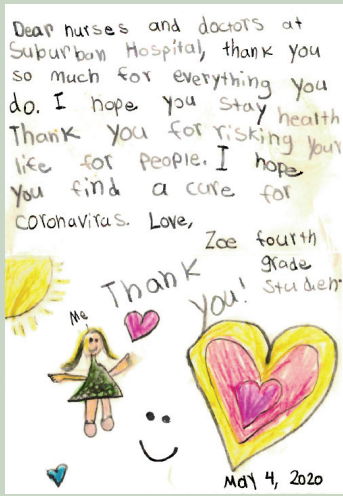 Dear nurses and doctors at
Suburban Hospital, thank you
so much for everything you
do. I hope you stay health
Thank you for risking your
life for people. I hope
you find a cure for
coronavirus. Love,
Zoe fourth
grade
Studen
Thank
you!
Me
May 4, 2020